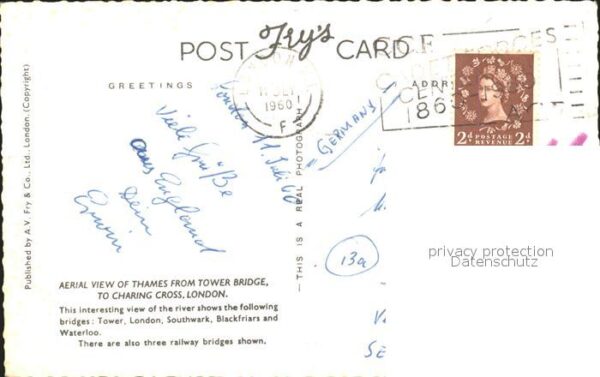 POST Fry's CARD
GREETINGS
ADDR
1960
F
2d POSTAGE REVENUE 2d
London 11. Juli 60
Viele Grüße
aus England
Dein
Erwin
GERMANY
13a
privacy protection
Datenschutz
THIS IS A REAL PHOTOGRAPH
Published by A.V. Fry & Co., Ltd., London. (Copyright)
AERIAL VIEW OF THAMES FROM TOWER BRIDGE,
TO CHARING CROSS, LONDON.
This interesting view of the river shows the following
bridges: Tower, London, Southwark, Blackfriars and
Waterloo.
There are also three railway bridges shown.